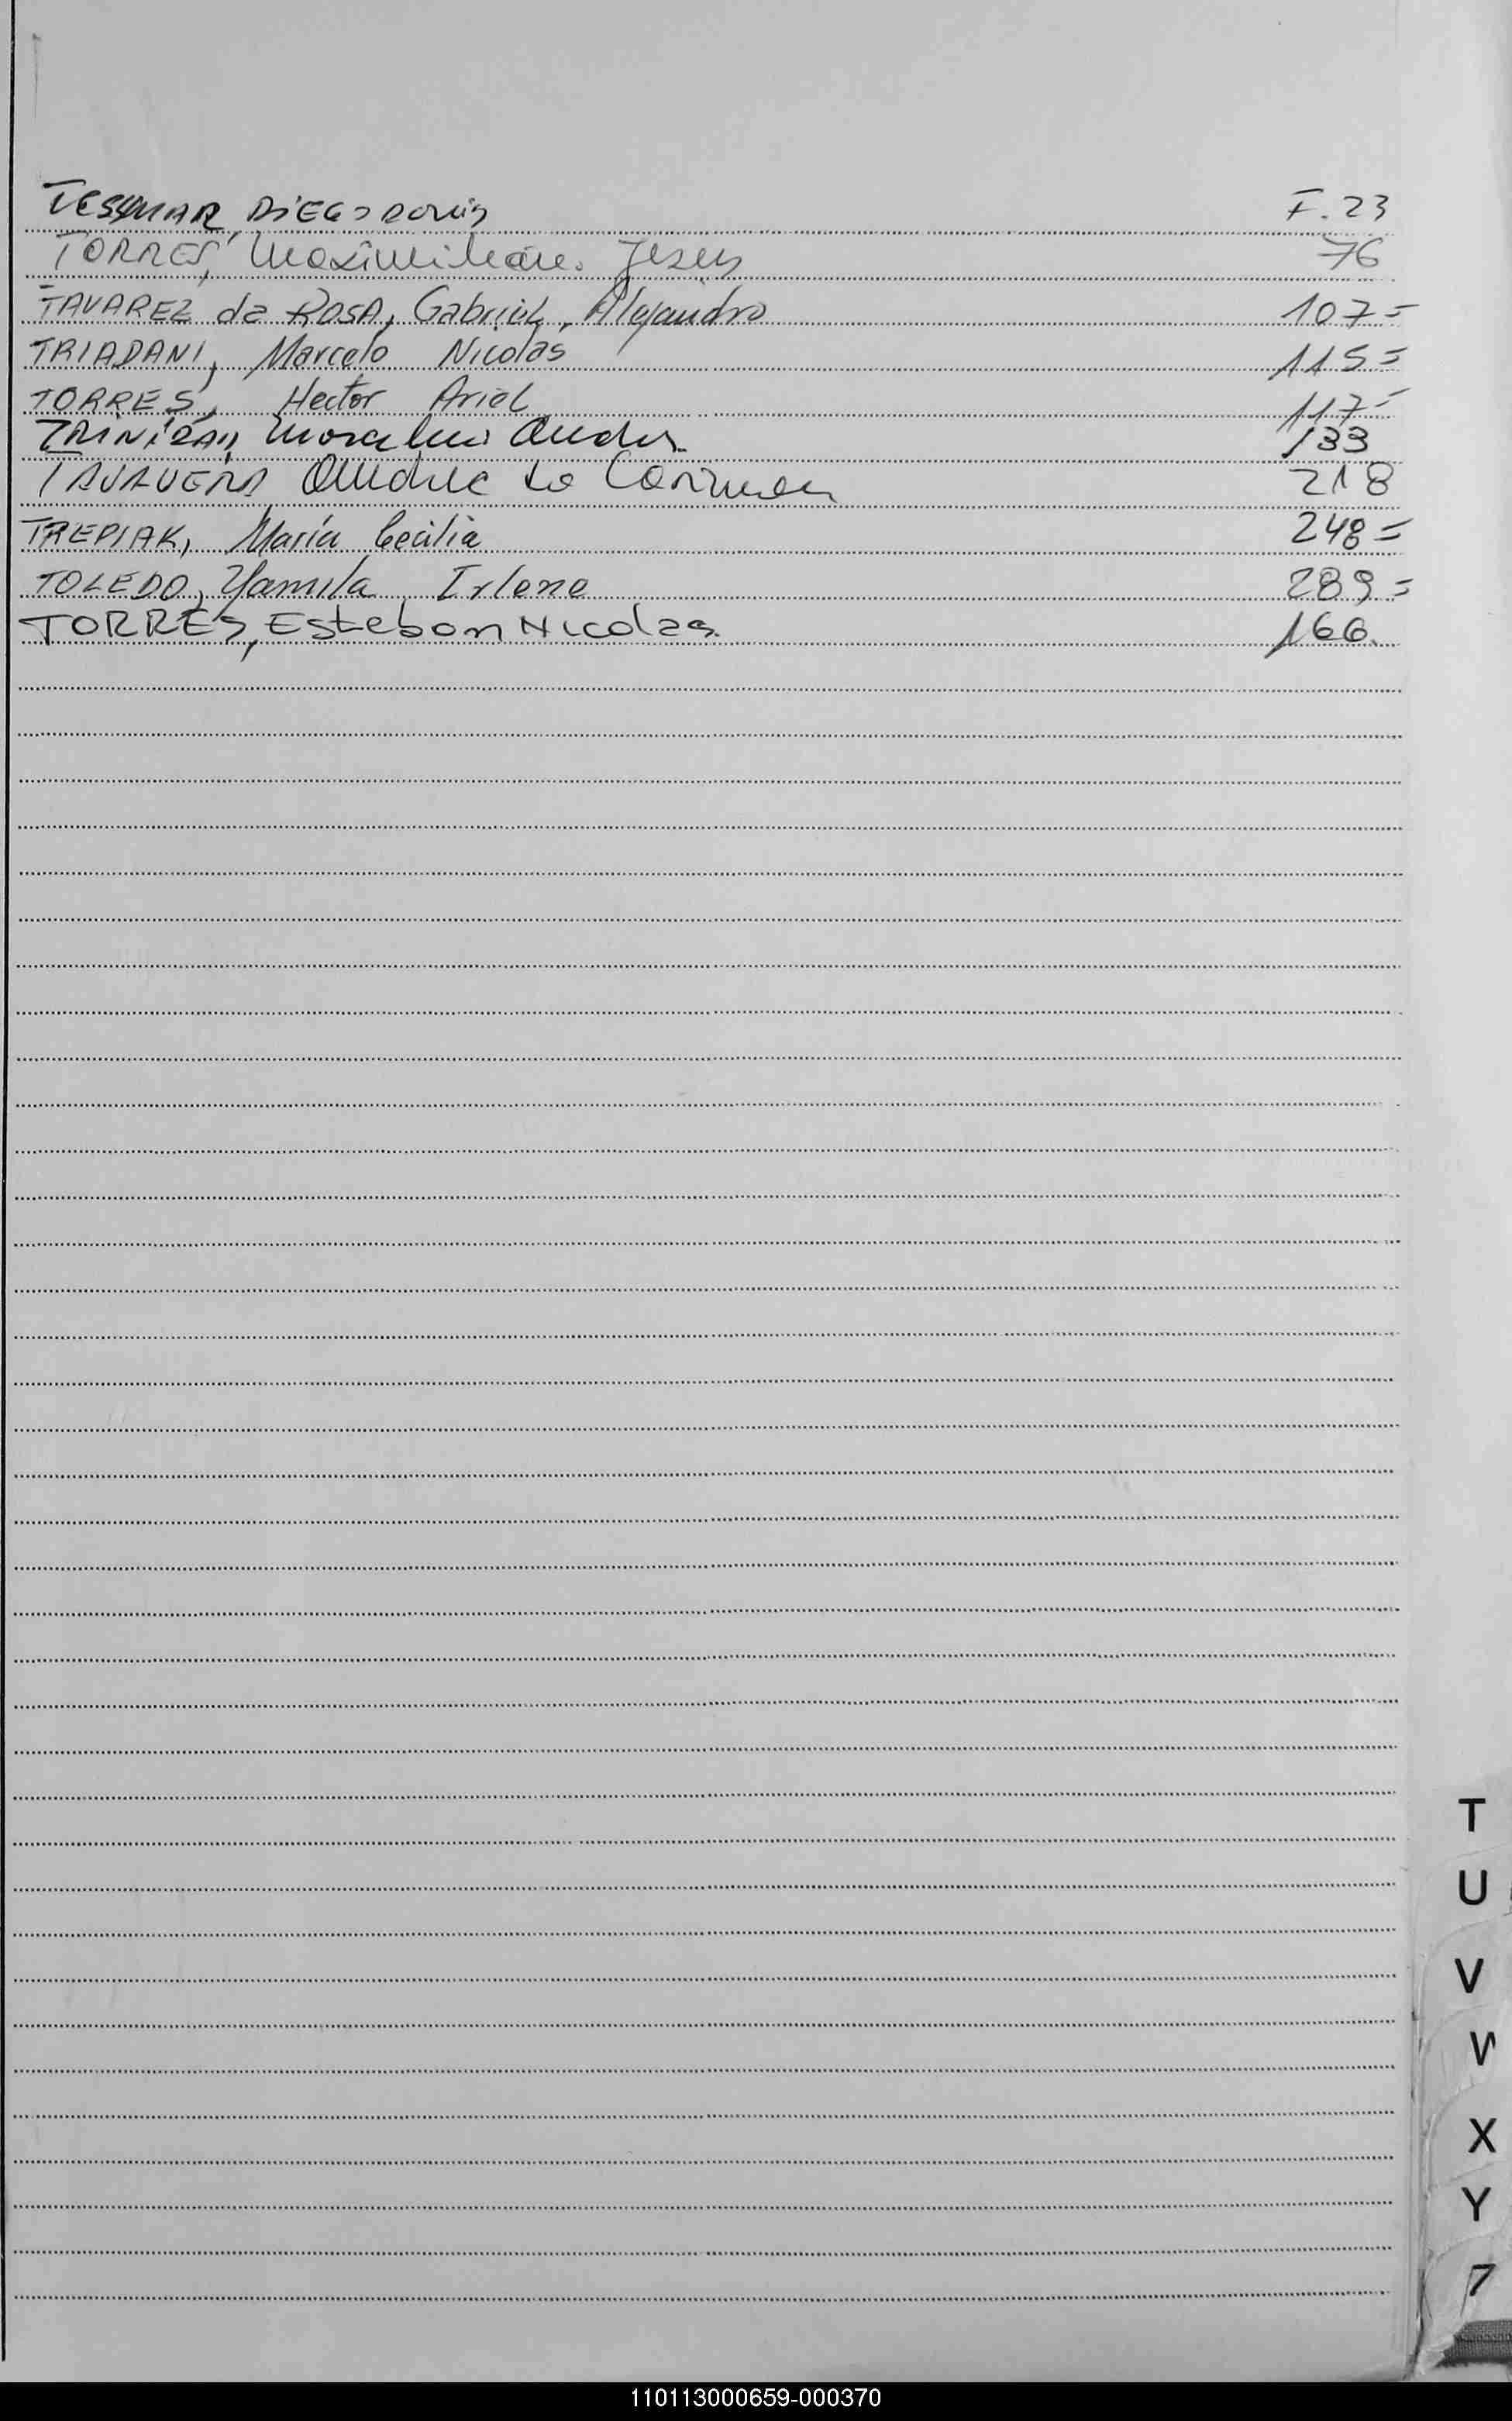 DIEGO F. 23
TORRES, Maximiliano Jesus 76
TAVAREZ da ROSA, Gabriel, Alejandro 107=
TRIADANI, Marcelo Nicolas 115=
TORRES, Hector Ariel 117=
133
218
TREPIAK, María Cecilia 248=
TOLEDO, Yamila Irlene 289=
TORRES, Esteban Nicolas 166.
T
U
V
W
X
Y
Z
110113000659-000370